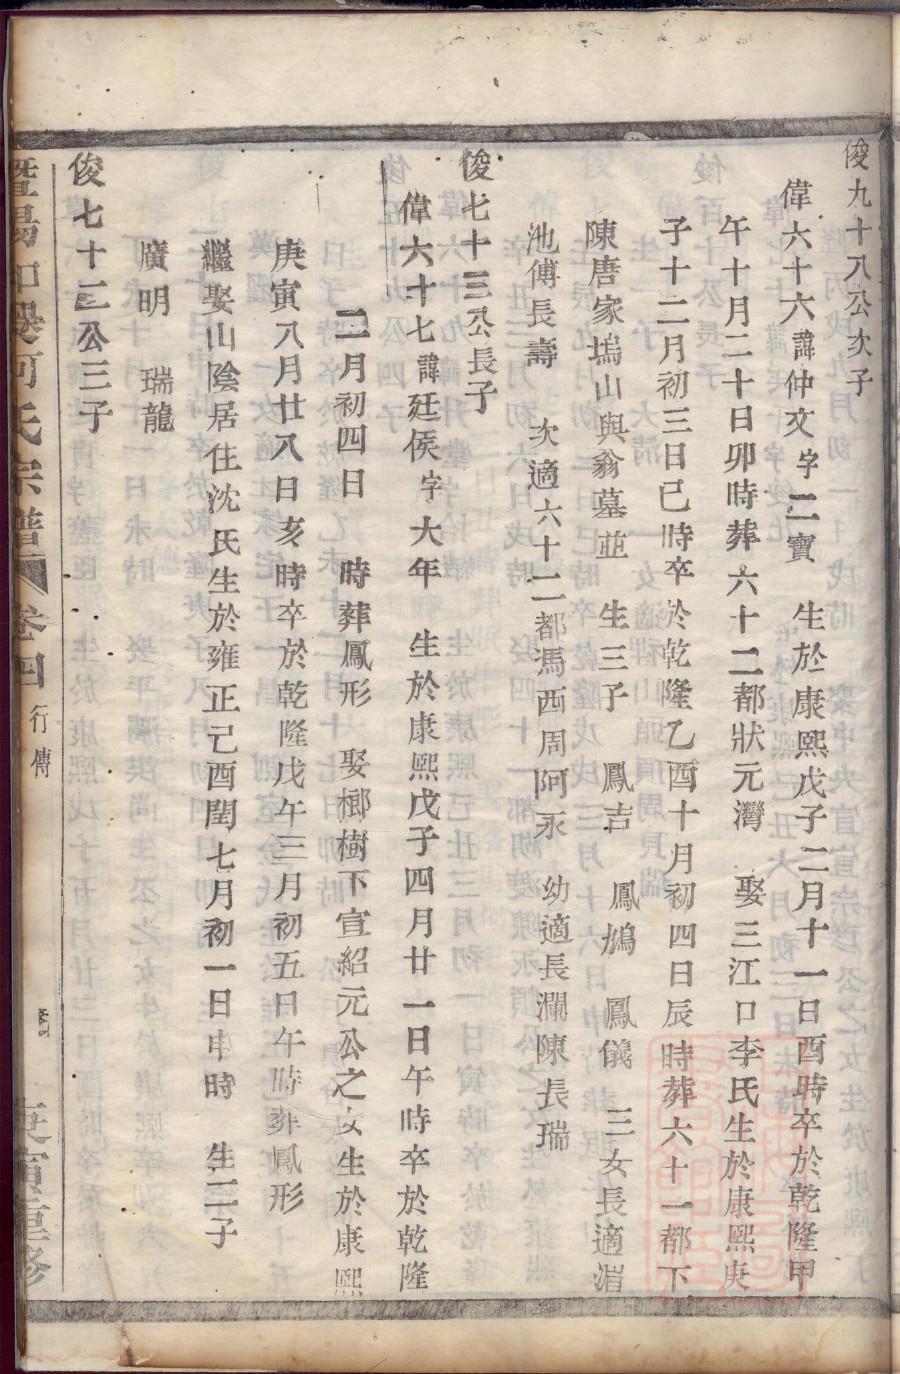 俊九十八公次子
偉六十六諱仲文字二寶 生於康熙戊子二月十一日酉時卒於乾隆甲
午十月二十日卯時葬六十二都狀元灣 娶三江口李氏生於康熙庚
子十二月初三日巳時卒於乾隆乙酉十月初四日辰時葬六十一都下
陳唐家塢山與翁墓並 生三子 鳳吉 鳳鳩 鳳儀 三女長適湄
池傅長壽 次適六十二都馮西周阿永 幼適長瀾陳長瑞
俊七十三公長子
偉六十七諱廷侯字大年 生於康熙戊子四月廿一日午時卒於乾隆
二月初四日 時葬鳳形 娶櫛樹下宣紹元公之女生於康熙
庚寅八月廿八日亥時卒於乾隆戊午三月初五日午時葬鳳形
繼娶山陰居住沈氏生於雍正己酉閏七月初一日申時 生二子
廣明 瑞龍
俊七十三公三子
暨陽 河氏宗譜 卷四 行傳 庚寅重修